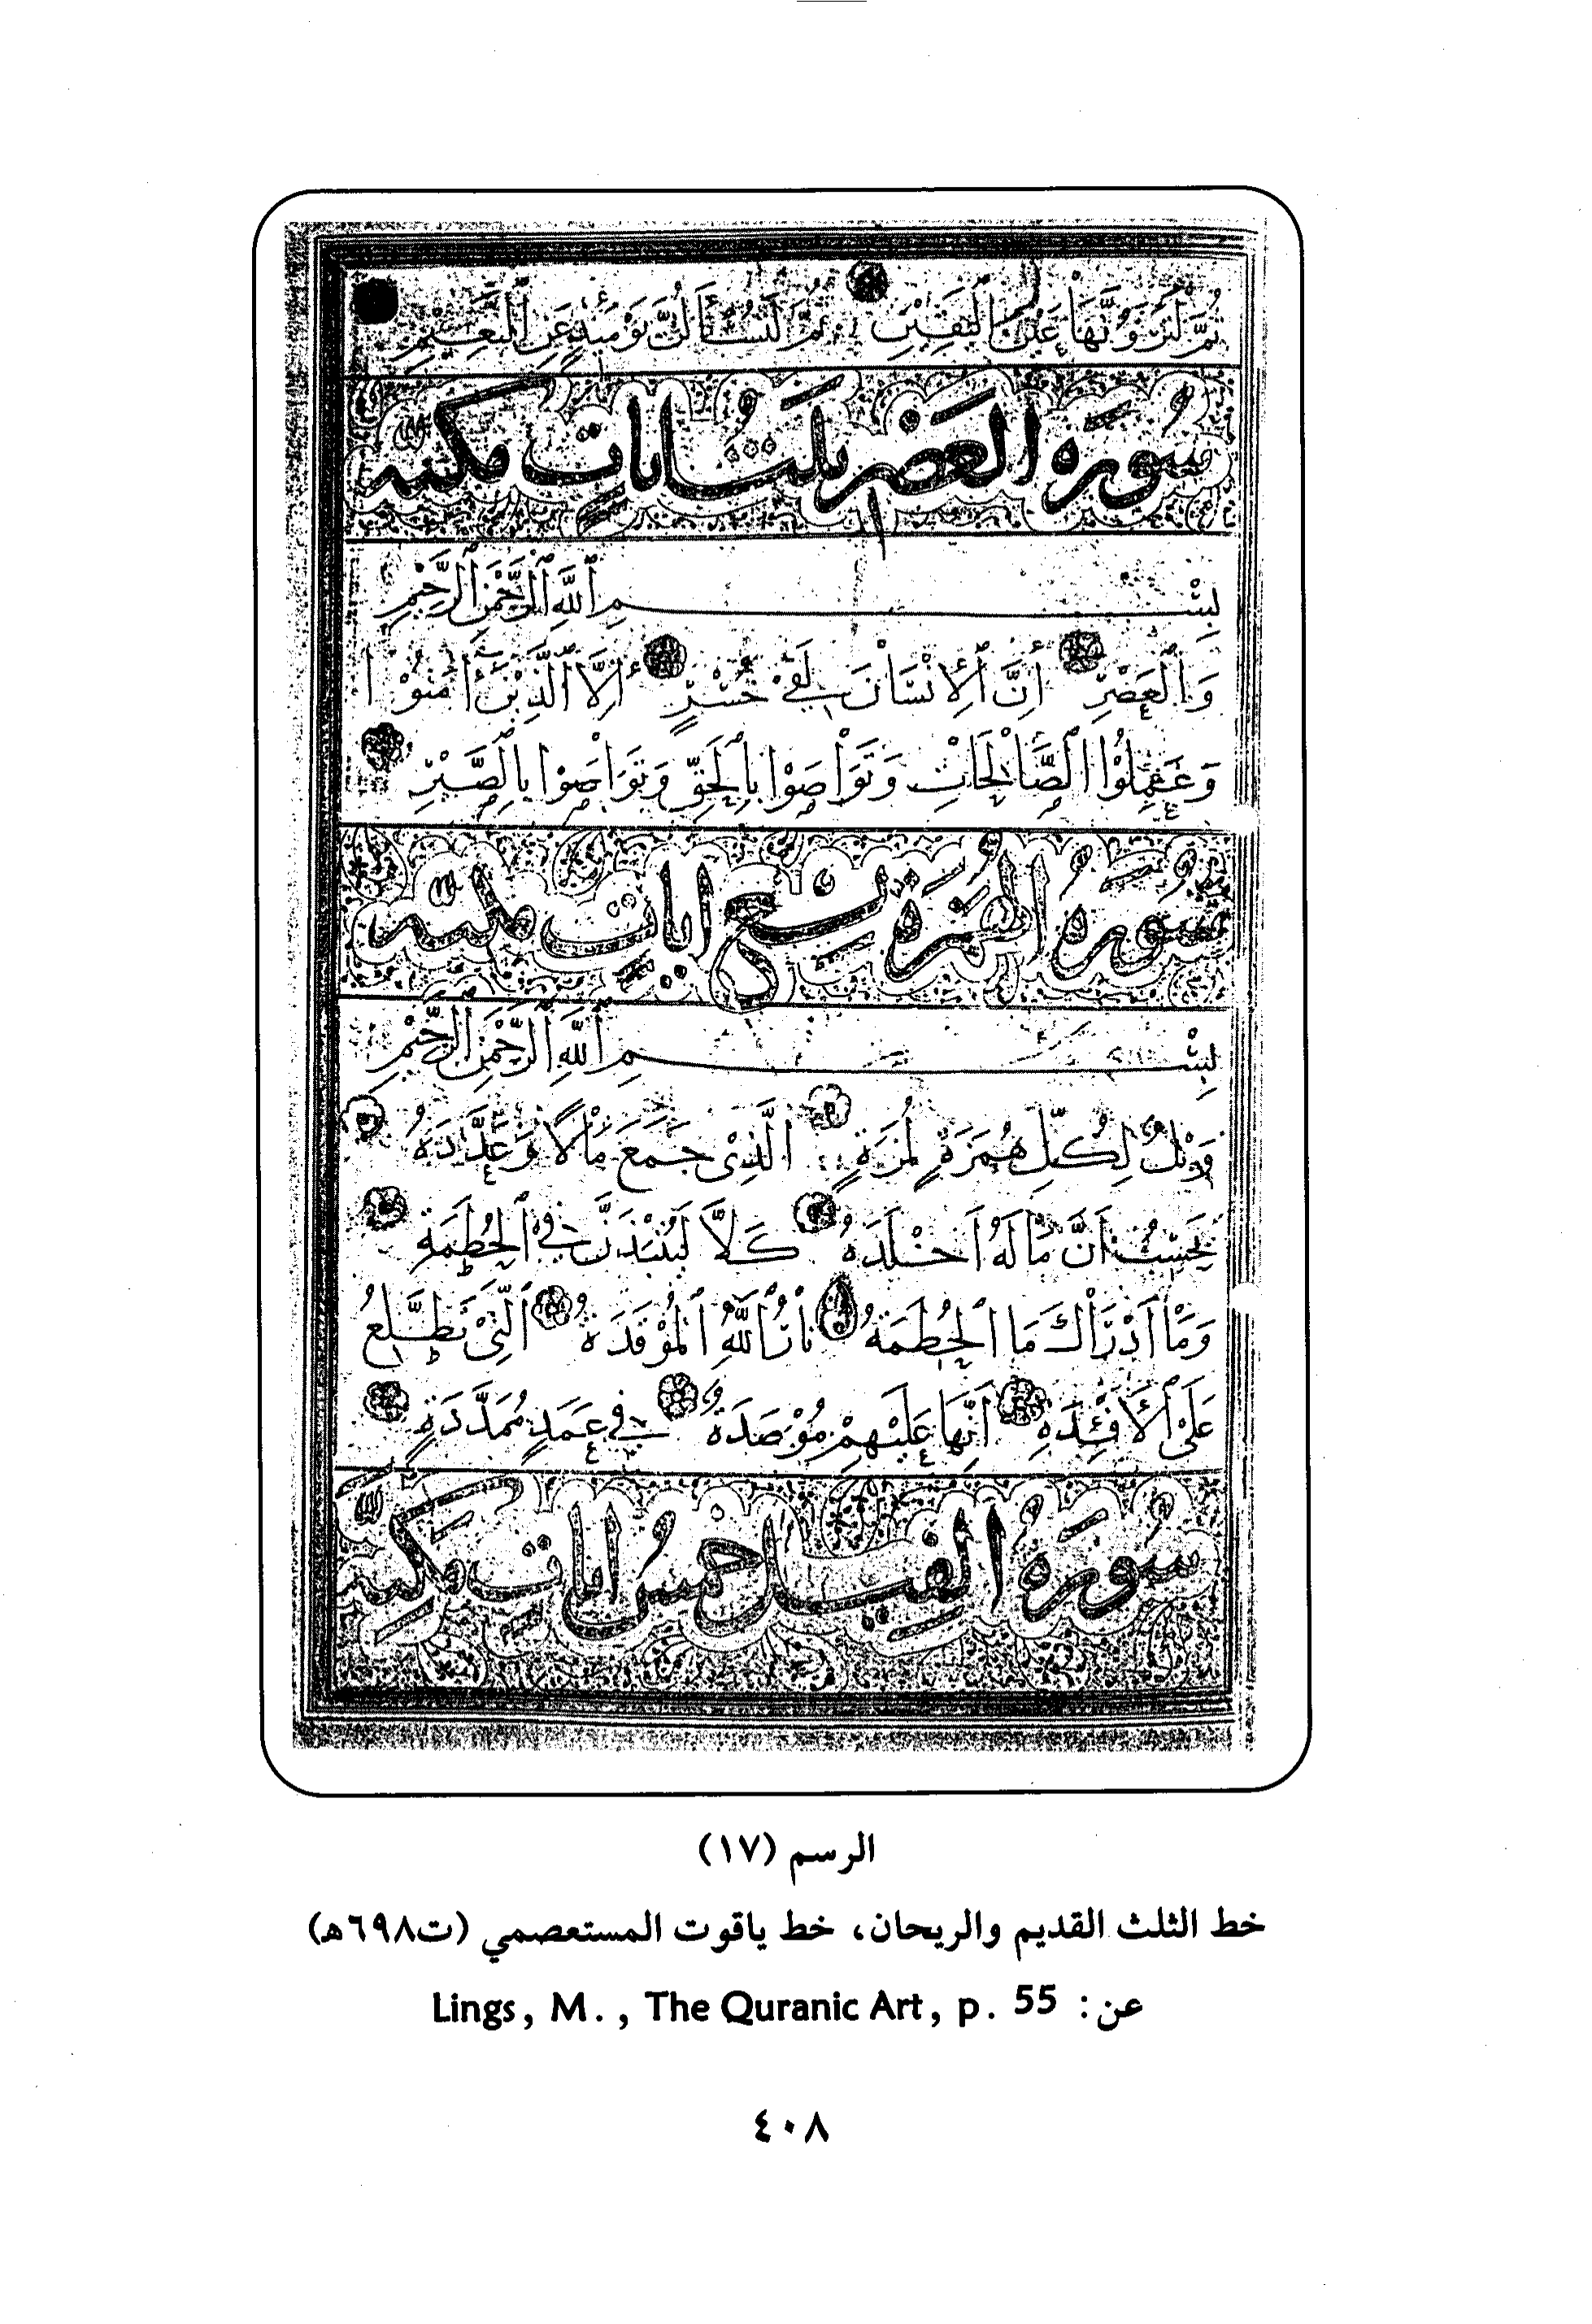 ثُمَّ لَتَرَوُنَّهَا عَيْنَ الْيَقِيْنِ ثُمَّ لَتُسْأَلُنَّ يَوْمَئِذٍ عَنِ النَّعِيْمِ
سُورَة العَصْر ثلث ايات مكية
بِسْمِ اللَّهِ الرَّحْمٰنِ الرَّحِيْمِ
وَالْعَصْرِ اِنَّ الْاِنْسَانَ لَفِيْ خُسْرٍ اِلَّا الَّذِيْنَ اٰمَنُوْا
وَعَمِلُوْا الصَّالِحَاتِ وَتَوَاصَوْا بِالْحَقِّ وَتَوَاصَوْا بِالصَّبْرِ
سُورَةُ الهُمَزَة تِسْع ايات مكية
بِسْمِ اللَّهِ الرَّحْمٰنِ الرَّحِيْمِ
وَيْلٌ لِكُلِّ هُمَزَةٍ لُمَزَةٍ الَّذِيْ جَمَعَ مَالًا وَعَدَّدَهُ
يَحْسَبُ اَنَّ مَالَهُ اَخْلَدَهُ كَلَّا لَيُنْبَذَنَّ فِي الْحُطَمَةِ
وَمَا اَدْرَاكَ مَا الْحُطَمَةُ نَارُ اللَّهِ الْمُوْقَدَةُ الَّتِيْ تَطَّلِعُ
عَلَى الْاَفْئِدَةِ اِنَّهَا عَلَيْهِمْ مُوْصَدَةٌ فِيْ عَمَدٍ مُمَدَّدَةٍ
سُورَةُ الفِيل خمسُ ايات مكية
الرسم (١٧)
خط الثلث القديم والريحان، خط ياقوت المستعصمي (ت٦٩٨هـ)
عن: Lings, M., The Quranic Art, p. 55
٤٠٨